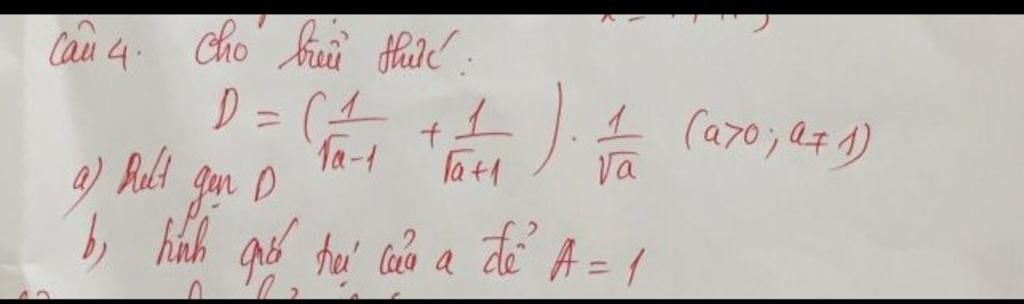 Câu 4. Cho biểu thức:
D = (1/(√a-1) + 1/(√a+1)) · 1/√a (a>0; a≠1)
a) Rút gọn D
b, tính giá trị của a để A = 1